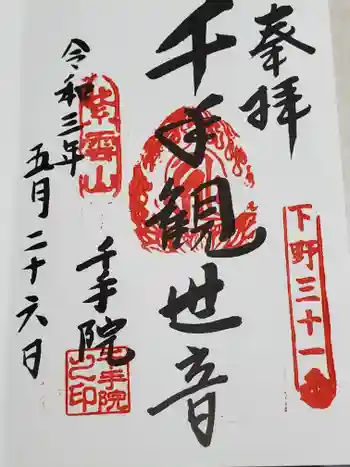 奉拝
下野三十一
千手観世音
千手院
紫雲山
千手院之印
令和三年
五月二十六日